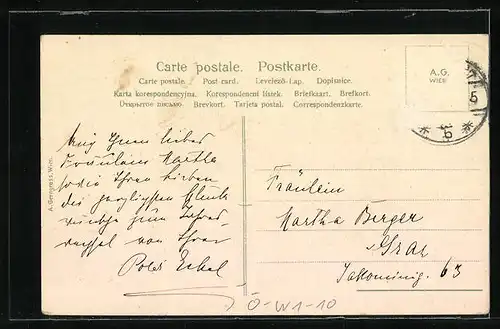 Carte postale. Postkarte.
Carte postale. Post card. Levelező-Lap. Dopisnice.
Karta korespondencyjna. Korespondenční lístek. Briefkaart. Brefkort.
Открытое письмо. Brevkort. Tarjeta postal. Correspondenzkarte.
A.G.
WIEN
5
* 5 *
A. Gerngross, Wien.
Ihnen liebes
Fräulein Martha
Ihren lieben
die herzlichsten Glück
wünsche zum Jahres
wechsel von Ihrer
Poldi Eckel
Fräulein
Martha Berger
Graz
Jakominig. 63
Ö-W1-10